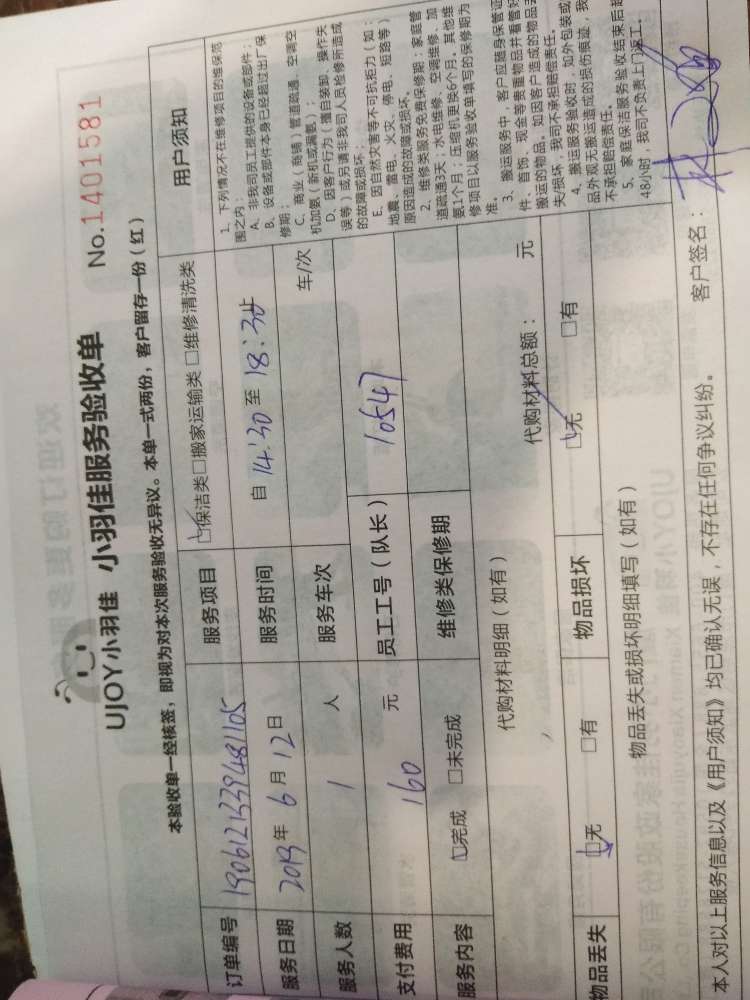 UJOY小羽佳 小羽佳服务验收单 No.1401581
本验收单一经核签，即视为对本次服务验收无异议。本单一式两份，客户留存一份（红）
订单编号 1906121339481105 服务项目 ☑保洁类□搬家运输类 □维修清洗类
服务日期 2019年 6月 12日 服务时间 自 14:30 至 18:30
服务人数 1 人 服务车次 车/次
支付费用 160 元 员工工号（队长） 10547
服务内容 ☑完成 □未完成 维修类保修期
代购材料明细（如有） 代购材料总额： 元
物品丢失 ☑无 □有 物品损坏 ☑无 □有
物品丢失或损坏明细填写（如有）
用户须知
1、下列情况不在维修项目的维保范
围之内：
A、非我司员工提供的设备或部件；
B、设备或部件本身已经超过出厂保
修期；
C、商业（商铺）管道疏通、空调空
机加氨（新机或漏氨）；
D、因客户行为（擅自装卸、操作失
误等）或另请非我司人员检修所造成
的故障或损坏；
E、因自然灾害等不可抗拒力（如：
地震、雷电、火灾、停电、短路等）
原因造成的故障或损坏。
2、维修类服务免费保修期：家庭管
道疏通3天；水电维修、空调维修、加
氨1个月；压缩机更换6个月。其他维
修项目以服务验收单填写的保修期为
准。
3、搬运服务中，客户应随身保管证
件、首饰、现金等贵重物品并看管好
搬运的物品。如因客户造成的物品丢
失/损坏，我司不承担赔偿责任。
4、搬运服务验收时，如外包装或
品外观无搬运造成的损伤痕迹，我
不承担赔偿责任。
5、家庭保洁服务验收结束后超
48小时，我司不负责上门返工。
本人对以上服务信息以及《用户须知》均已确认无误，不存在任何争议纠纷。 客户签名：